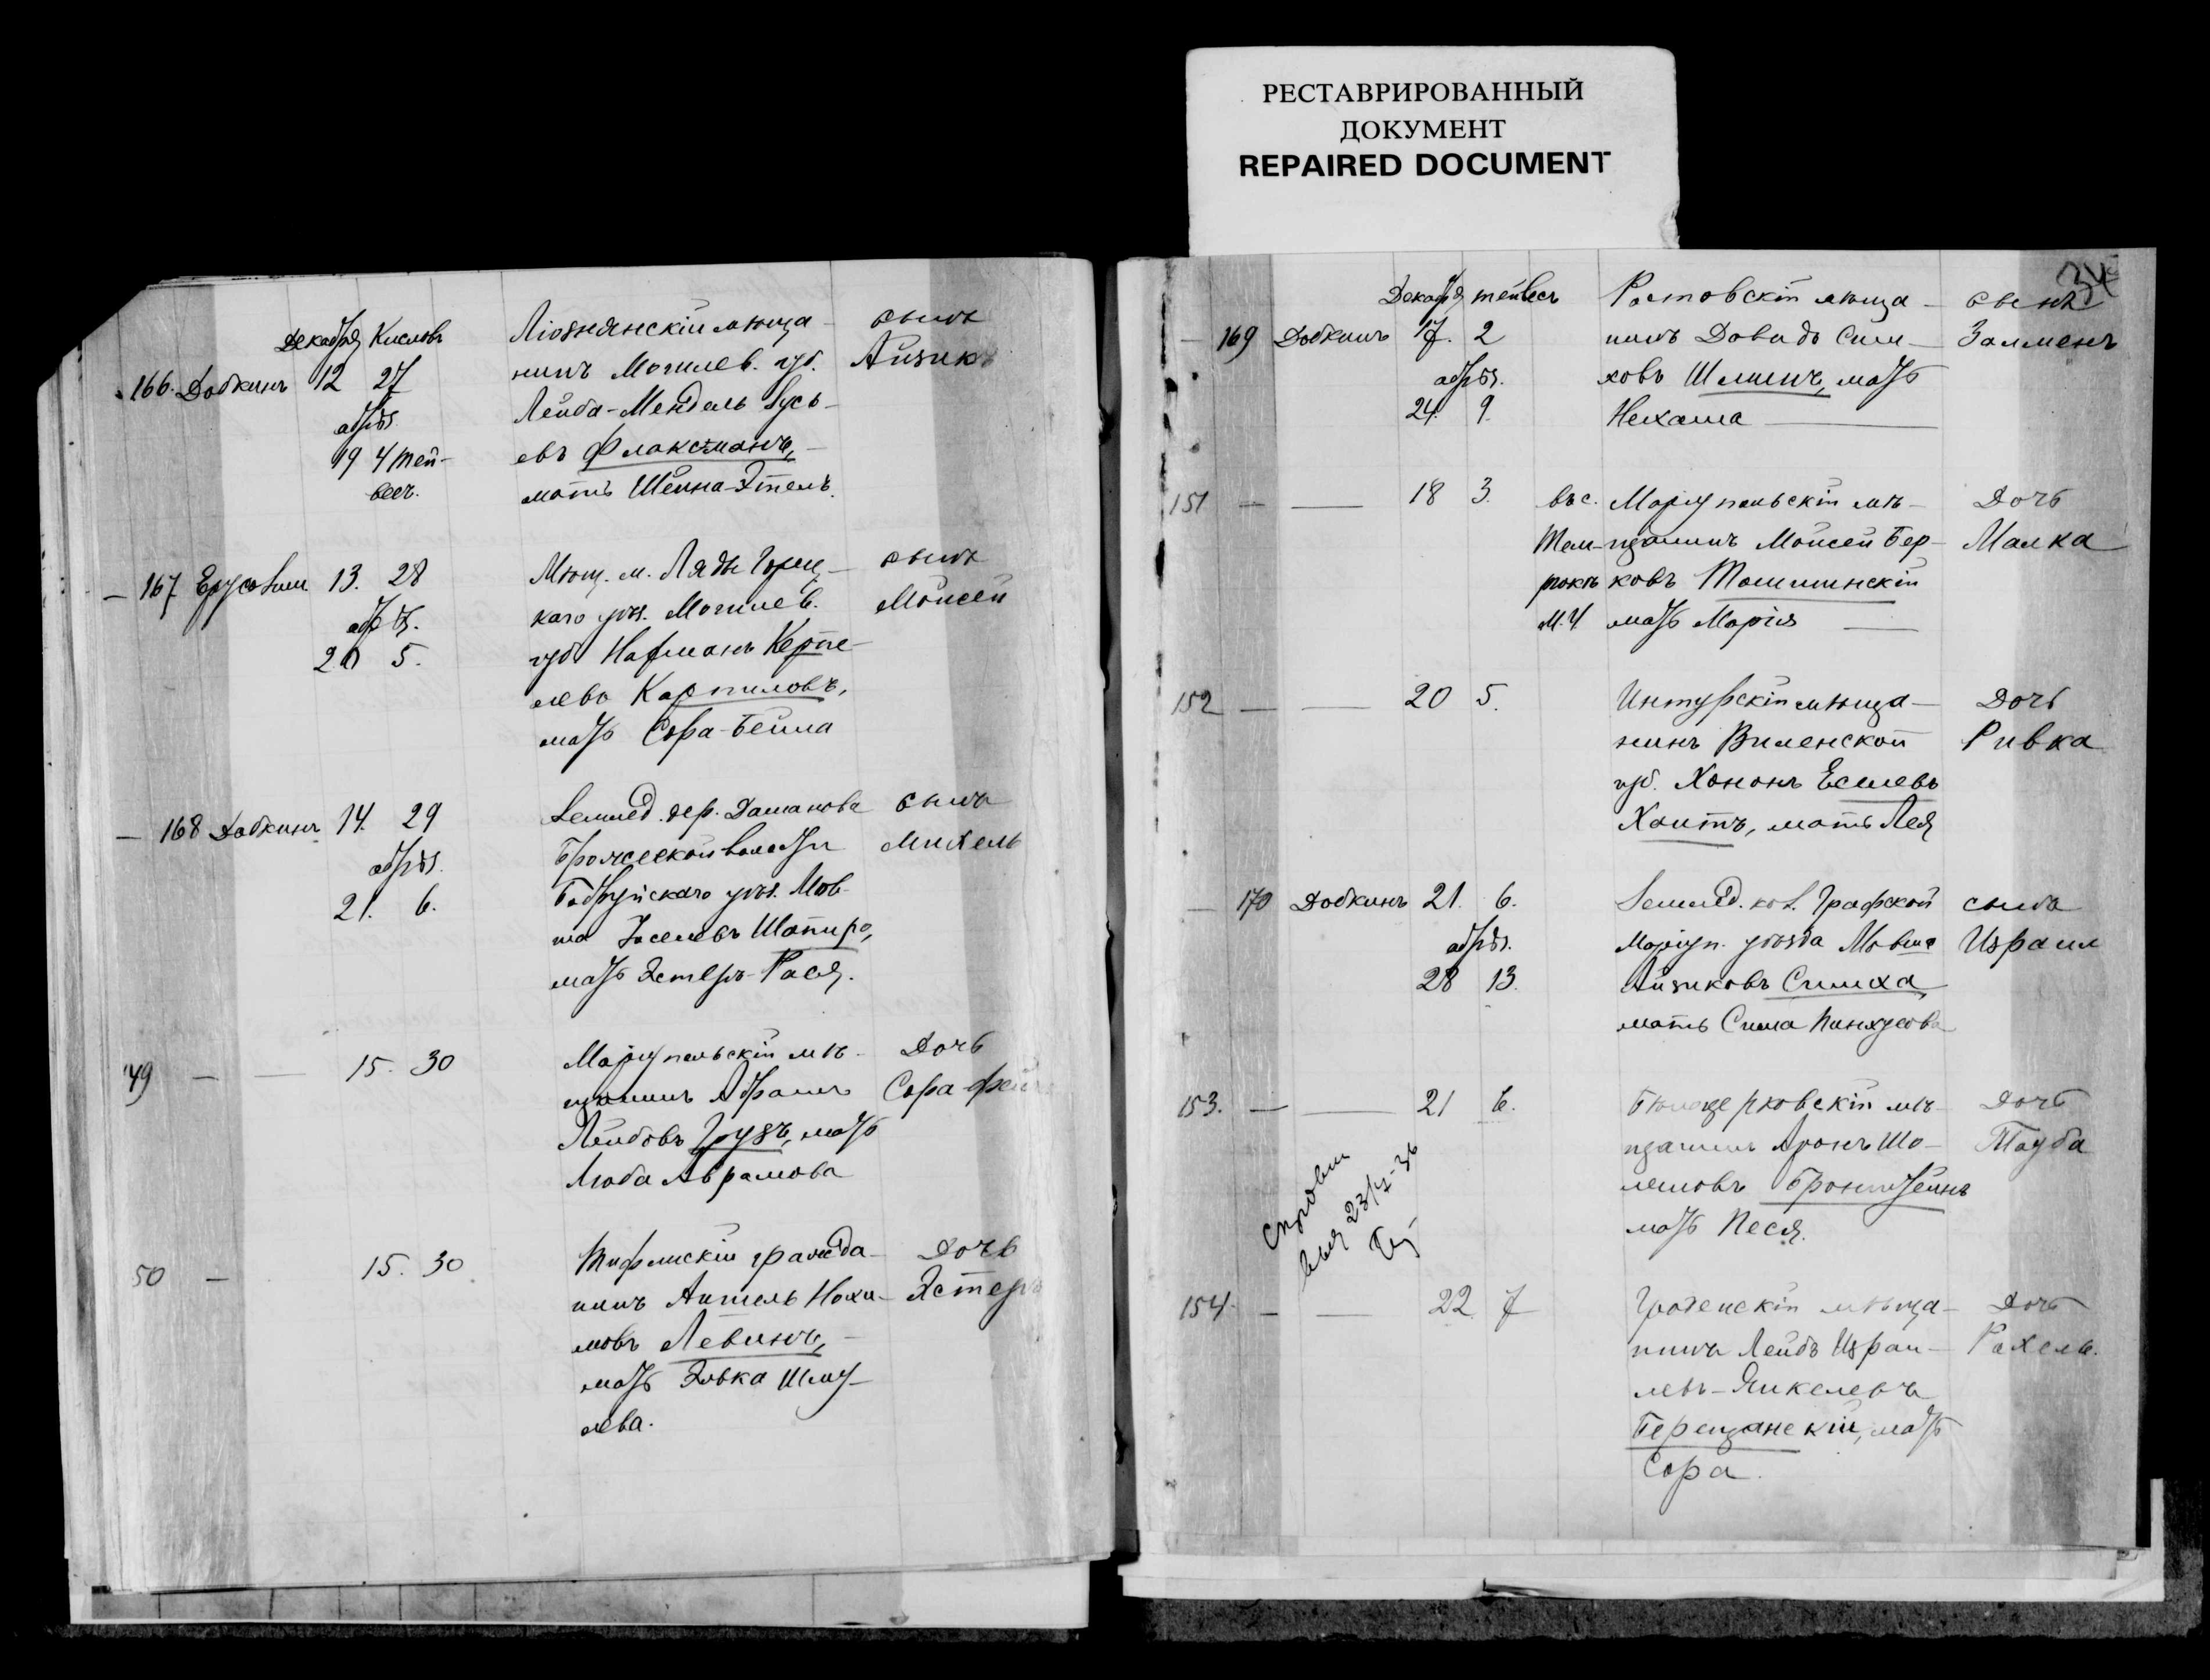 РЕСТАВРИРОВАННЫЙ
ДОКУМЕНТ
REPAIRED DOCUMENT
Декабря Кислевъ
166. Добкинъ 12 27
обрѣз.
19 4 тей-
весъ.
Ліознянскій мѣща-
нинъ Могилев. губ.
Лейба-Мендель Зусь-
евъ Флаксманъ,
мать Шейна-Этель.
сынъ
Айзикъ
167 13. 28
обрѣз.
20 5.
Мѣщ. м. Ляды Горец-
каго уѣз. Могилев.
губ. Нахманъ
левъ Карпиловъ,
мать Сора-Бейла
сынъ
Мойсей
168 Добкинъ 14. 29
обрѣз.
21. 6.
Землед. дер.
волости
Бобруйскаго уѣз. Мов-
ша Іоселевъ Шапиро,
мать Эстеръ-Рася.
сынъ
Михель
149 — — 15. 30
Маріупольскій мѣ-
щанинъ Абрамъ
Лейбовъ Грузъ, мать
Люба Аврамова
Дочь
Сора-
50 — 15. 30
Тифлисскій гражда-
нинъ Антель Нохи-
мовъ Левинъ, —
мать Элька Шму-
лева.
Дочь
Эстеръ
34
Декабря тейвесъ
— 169 Добкинъ 17. 2
обрѣз.
24. 9.
Ростовскій мѣща-
нинъ Довидъ Сим-
ховъ Шлиинъ, мать
Нехама —
сынъ
Залменъ
151 — — 18 3.
въ с.
Тем-
рюкъ
М.У
Маріупольскій мѣ-
щанинъ Мойсей Бер-
ковъ Томшинскій
мать Марія —
Дочь
Малка
152 — — 20 5.
Интурскій мѣща-
нинъ Виленской
губ. Хононъ Еселевъ
Хаитъ, мать Лея
Дочь
Ривка
— 170 Добкинъ 21. 6.
обрѣз.
28 13.
Землед. кол. Графской
Маріуп. уѣзда Мовша
Айзиковъ Симха,
мать Сима Пинхусова
сынъ
Израил
153. — — 21 6.
Бѣлоцерковскій мѣ-
щанинъ Аронъ Шо-
лемовъ Бронштейнъ
мать Песя.
Дочь
Тауба
154 — — 22 7
Гроденскій мѣща-
нинъ Лейбъ Израи-
левъ-Янкелевъ
Берещанскій, мать
Сора.
Дочь
Рахель.